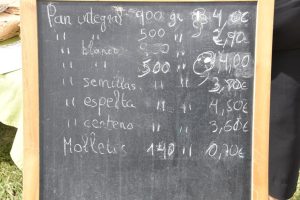 Pan integral 900 gr 4,00€
" " 500 " 2,90€
" blanco
" " 500 4,00
" semillas " " 3,80€
" espelta " " 4,50€
" centeno " " 3,60€
Molletes 140 " 0,70€